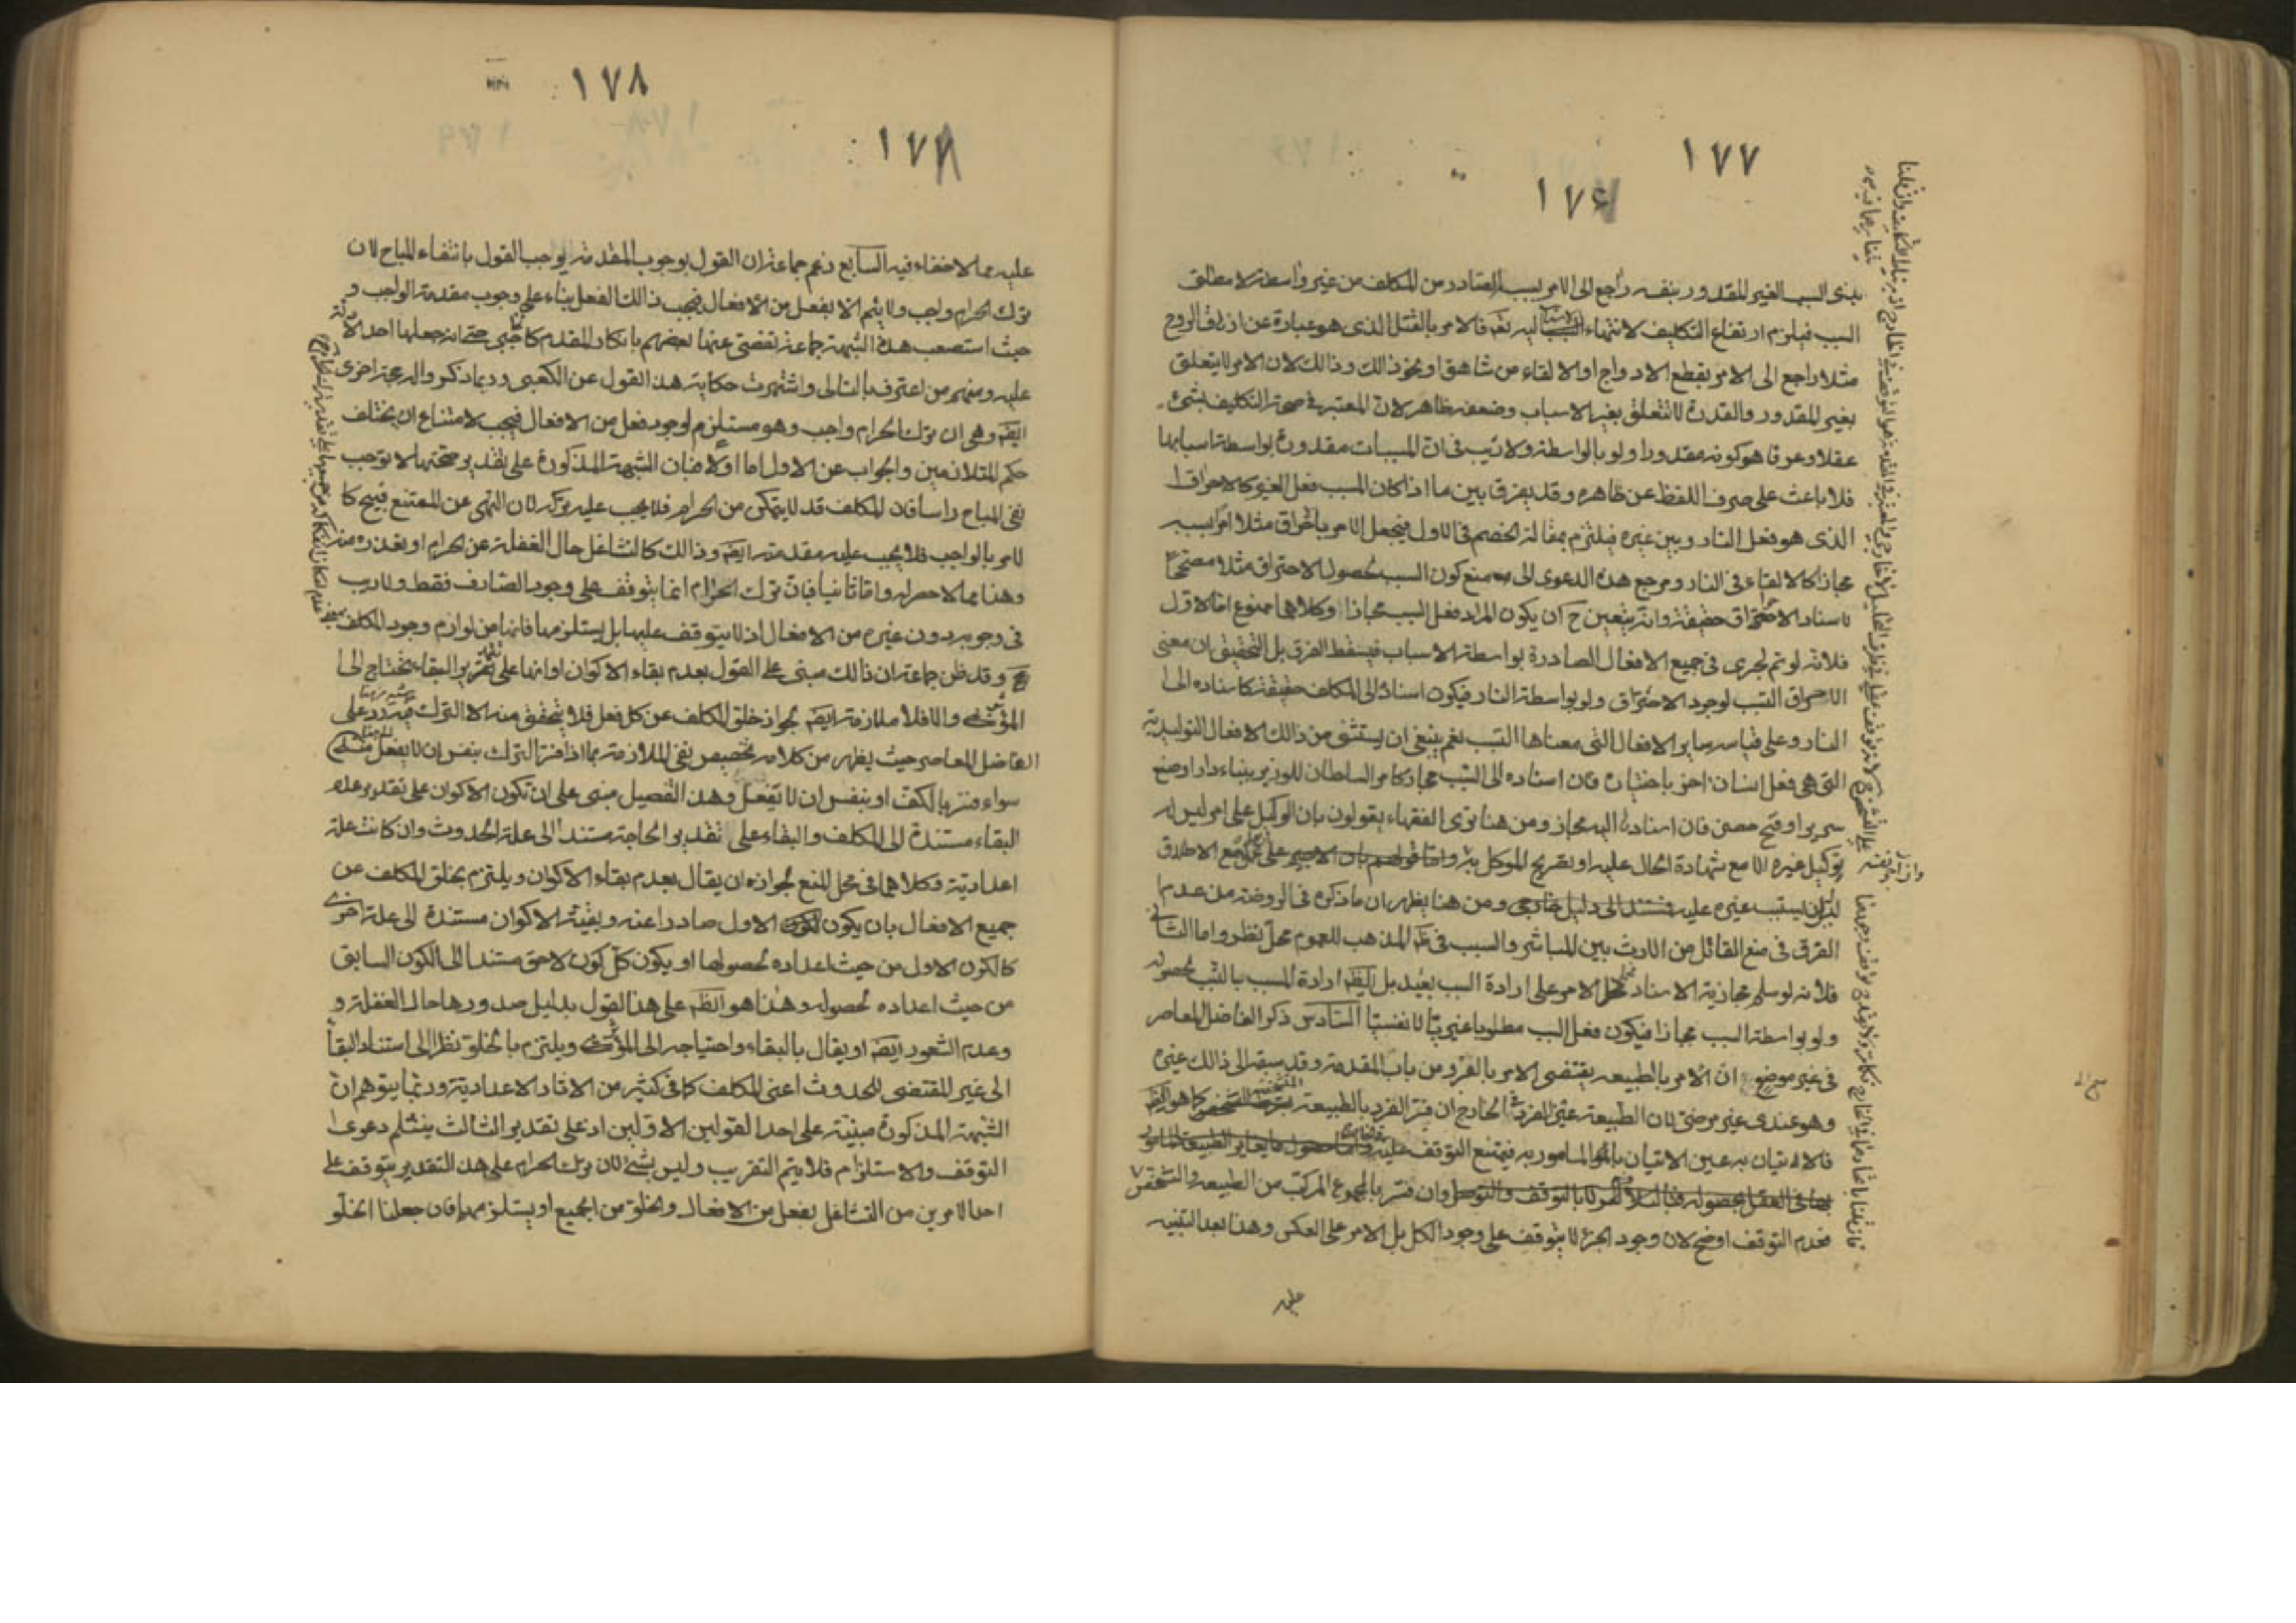 ١٧٧
١٧٤
السبب الغير المقدور بنفسه راجع الى الامر بسببه الصادر من المكلف من غير واسطة لا مطلق
السبب فيلزم ارتفاع التكليف لانتهاء اليه نعم فالامر بالقتل الذى هو عبارة عن ازهاق الروح
مثلا راجع الى الامر بقطع الاوداج او الالقاء من شاهق او نحو ذالك وذالك لان الامر لا يتعلق
بغير المقدور والقدرة لا تتعلق بغير الاسباب وضعفه ظاهر لان المعتبر فى صحة التكليف بشىء
عقلا وعرفا هو كونه مقدورا ولو بالواسطة ولا ريب فى ان المسببات مقدورة بواسطة اسبابها
فلا باعث على صرف اللفظ عن ظاهره وقد يفرق بين ما اذا كان المسبب فعل الغير كالاحراق
الذى هو فعل النار وبين غيره فيلتزم بمقالة الخصم فى الاول فيجعل الامر باحراق مثلا امرا بسببه
مجازا كالالقاء فى النار ومرجع هذه الدعوى الى منع كون السبب لحصول الاحتراق مثلا مصححا
لاسناد الاحراق حقيقة وانه يتعين ح ان يكون المراد فعل السبب مجازا وكلاهما ممنوع اما الاول
فلانه لو تم لجرى فى جميع الافعال الصادرة بواسطة الاسباب فيسقط الفرق بل التحقيق ان معنى
الاحراق التسبب لوجود الاحتراق ولو بواسطة النار فيكون اسناده الى المكلف حقيقة كاسناده الى
النار وعلى قياسه ساير الافعال التى معناها التسبب نعم ينبغى ان يستثنى من ذالك الافعال التوليدية
التى هى فعل انسان اخر باختياره فان اسناده الى السبب مجاز كامر السلطان للوزير ببناء دار او صنع
سرير او فتح حصن فان اسنادها اليه مجاز ومن هنا ترى الفقهاء يقولون بان الوكيل على امر ليس له
توكيل غيره الا مع شهادة الحال عليه او بتصريح الموكل به واما قولهم بان الاجير على عمل مع الاطلاق
عليه فمستند الى دليل خارجى ومن هنا يظهر ان ما ذكره فى الروضة من عدم
الفرق فى منع القاتل من الارث بين المباشر والسبب فى ظ المذهب للعموم محل نظر واما الثانى
فلانه لو سلم مجازية الاسناد فحمل الامر على ارادة السبب بعيد بل الظ ارادة المسبب بالتسبب لحصوله
ولو بواسطة السبب مجازا فيكون فعل السبب مطلوبا غيريا لا نفسيا السادس ذكر الفاضل المعاصر
فى غير موضع ان الامر بالطبيعه يقتضى الامر بالفرد من باب المقدمة وقد سبقه الى ذالك غيره
وهو عندى غير مرضى لان الطبيعة عين الفرد فى الخارج ان فسر الفرد بالطبيعة المتشخصة كما هو الظ
فالاتيان به عين الاتيان بالمامور به فيمتنع التوقف عليه
وان فسر بالمجموع المركب من الطبيعه والتشخص
فعدم التوقف اوضح لان وجود الجزء لا يتوقف على وجود الكل بل الامر على العكس وهذا بعد التنبيه
عليه
١٧٨
١٧٧
عليه مما لا خفاء فيه السابع زعم جماعة ان القول بوجوب المقدمة يوجب القول بانتفاء المباح لان
ترك الحرام واجب ولا يتم الا بفعل من الافعال فيجب ذالك الفعل بناء على وجوب مقدمة الواجب و
حيث استصعب هذه الشبهة جماعة تفصى عنها بعضهم بانكار المقدمة كالحاجبى حتى انه جعلها احد الادلة
عليه ومنهم من اعترف بالتالى واشتهرت حكاية هذا القول عن الكعبى وربما ذكروا له حجة اخرى
ايضا وهى ان ترك الحرام واجب وهو مستلزم لوجود فعل من الافعال فيجب لامتناع ان يختلف
حكم المتلازمين والجواب عن الاول اما اولا فبان الشبهة المذكورة على تقدير صحتها لا توجب
نفى المباح راسا فان المكلف قد لا يتمكن من الحرام فلا يجب عليه تركه لان النهى عن الممتنع قبيح كا
لامر بالواجب فلا يجب عليه مقدمته ايضا وذالك كالتشاغل حال الغفلة عن الحرام او بعذره منه
وهذا مما لا حصر له واما ثانيا فبان ترك الحرام انما يتوقف على وجود الصارف فقط ولا ريب
فى وجوبه دون غيره من الافعال اذ لا يتوقف عليها بل يستلزمها فانها من لوازم وجود المكلف
وقد ظن جماعة ان ذالك مبنى على القول بعدم بقاء الاكوان او انها على تقدير البقاء يحتاج الى
المؤثر والا فلا ملازمة ايضا لجواز خلو المكلف عن كل فعل فلا يتحقق منه الا الترك
الفاضل المعاصر حيث يظهر من كلامه تخصيص نفى الملازمة بما اذا فسر الترك بنفس ان لا يفعل
سواء فسر بالكف او بنفس ان لا يفعل وهذا التفصيل مبنى على ان تكون الاكوان على تقدير عدم
البقاء مستندة الى المكلف والبقاء على تقدير الحاجة مستندا الى علة الحدوث وان كانت علة
اعدادية وكلاهما فى محل المنع لجواز ان يقال بعدم بقاء الاكوان ويلتزم بخلو المكلف عن
جميع الافعال بان يكون الكون الاول صادرا عنه وبقية الاكوان مستندة الى علة اخرى
كالكون الاول من حيث اعداده لحصولها او يكون كل كون لاحق مستندا الى الكون السابق
من حيث اعداده لحصوله وهذا هو الظ على هذا القول بدليل صدورها حال الغفلة و
وعدم الشعور ايضا او يقال بالبقاء واحتياجه الى المؤثر ويلتزم بالخلو نظرا الى استناد البقاء
الى غير المقتضى للحدوث اعنى المكلف كما فى كثير من الاثار الاعدادية وربما يتوهم ان
الشبهة المذكورة مبنية على احد القولين الاولين اذ على تقدير الثالث ينثلم دعوى
التوقف والاستلزام فلا يتم التقريب وليس بشئ لان ترك الحرام على هذا التقدير يتوقف على
احد الامرين من التشاغل بفعل من الافعال والخلو من الجميع او يستلزمها فان جعلنا الخلو